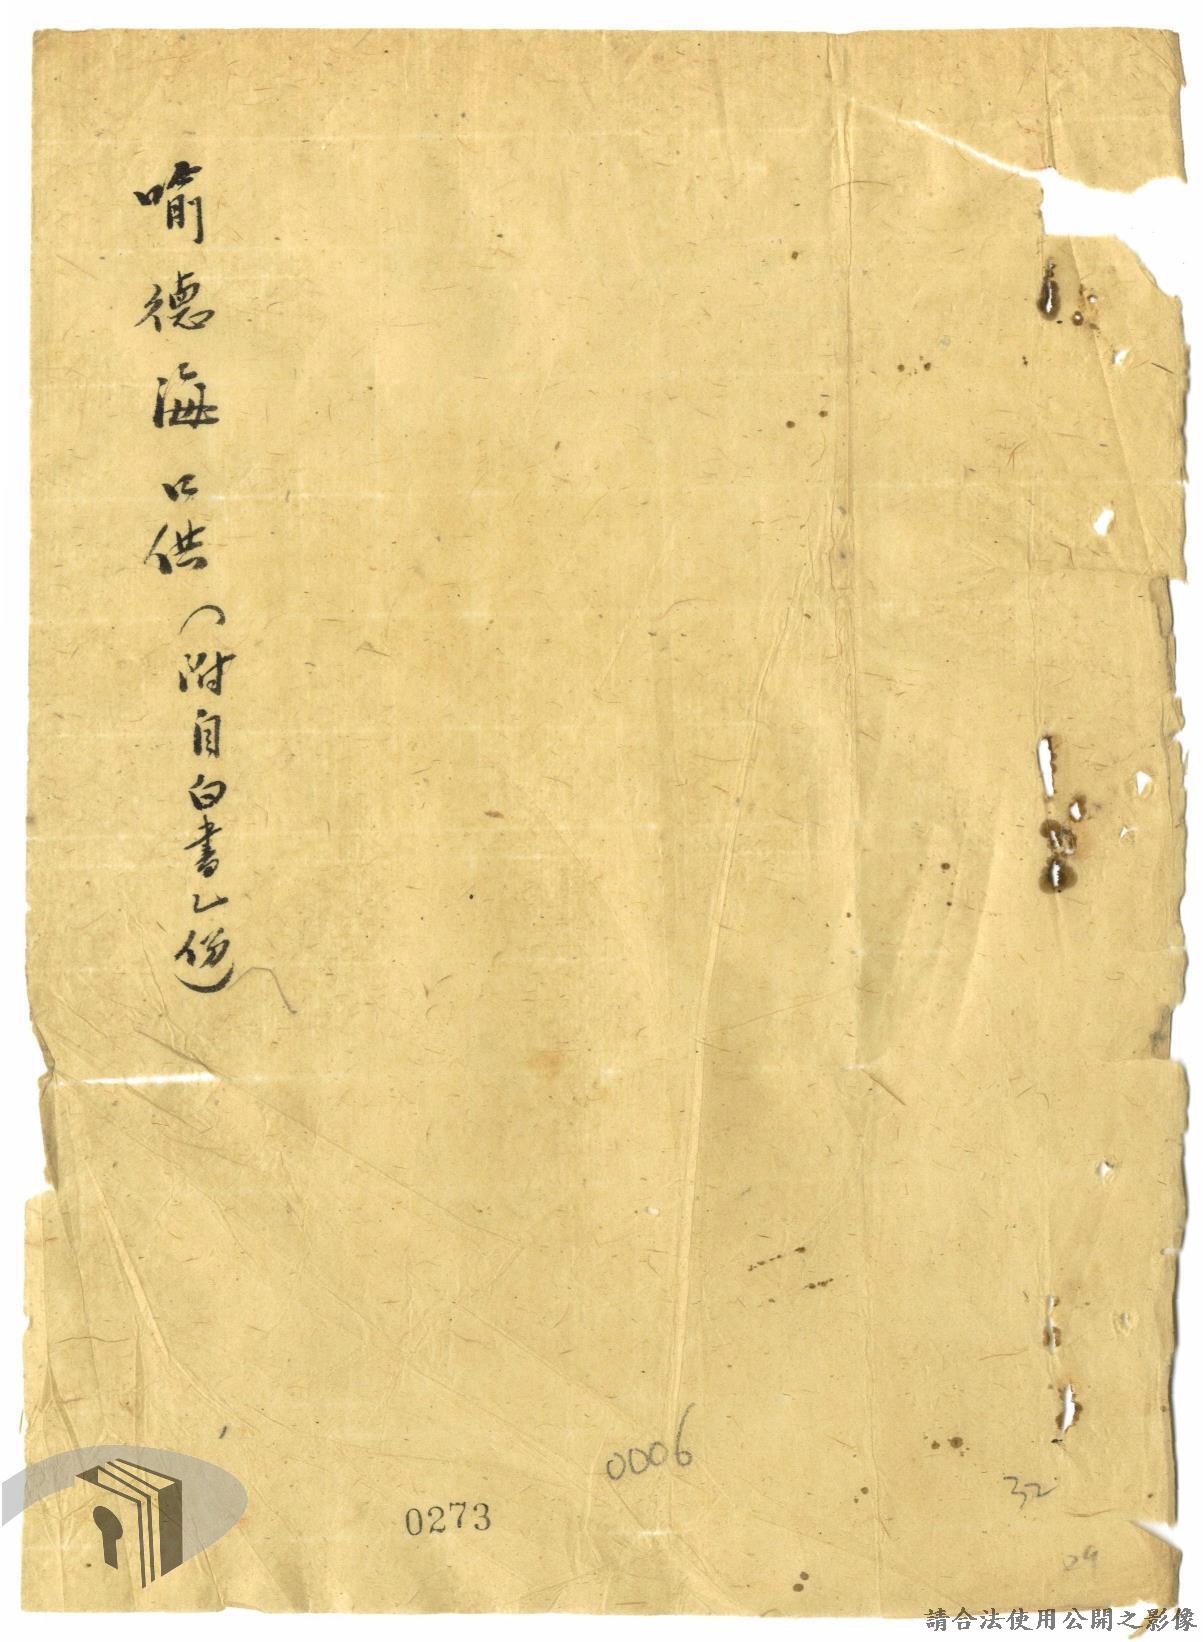 喻德海口供(附自白書乙份)
0006
0273
32
29
請合法使用公開之影像